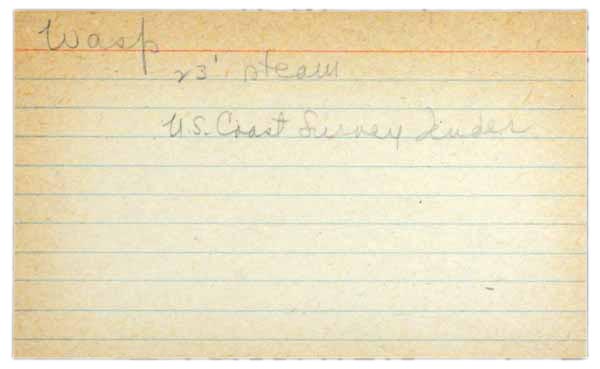 Wasp
23' steam
U.S. Coast Survey Tender